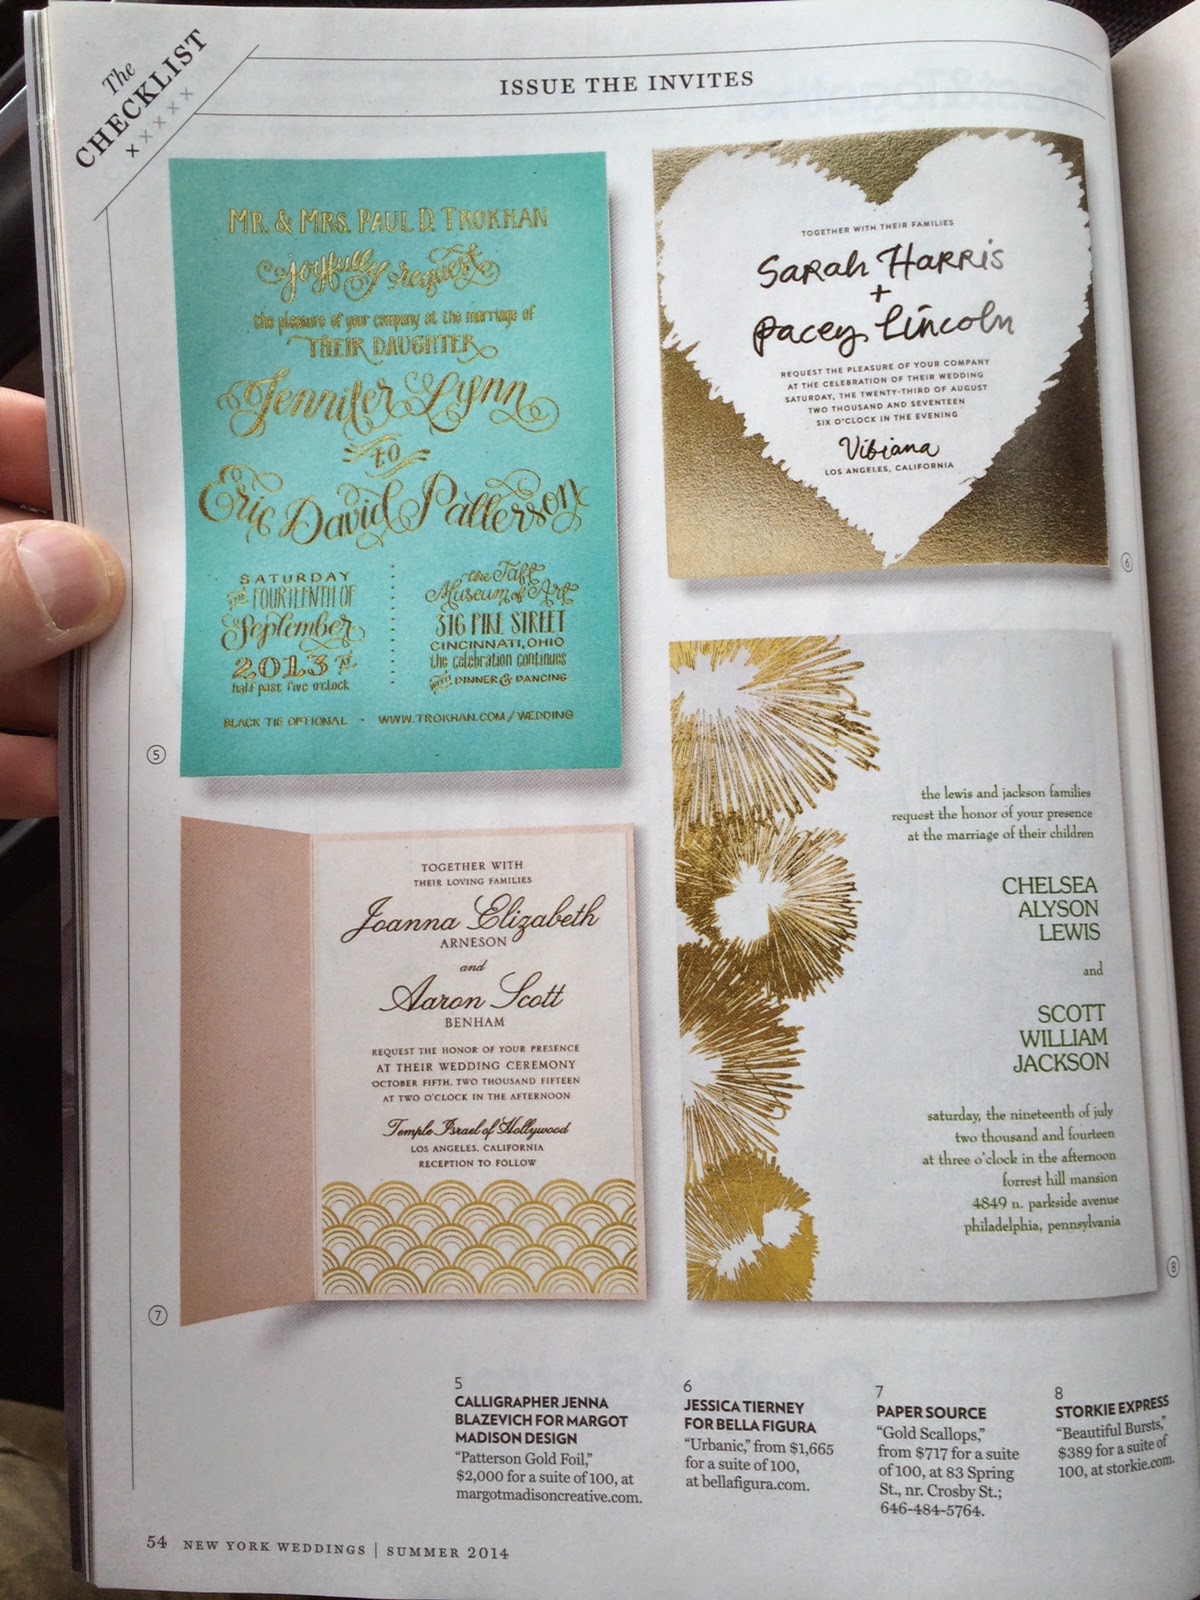 The
CHECKLIST
×××××
ISSUE THE INVITES
MR. & MRS. PAUL D. TROKHAN
joyfully request
the pleasure of your company at the marriage of
THEIR DAUGHTER
Jennifer Lynn
to
Eric David Patterson
SATURDAY
THE FOURTEENTH OF
September
2013
half past five o'clock
the Taft
Museum of Art
316 PIKE STREET
CINCINNATI, OHIO
the celebration continues
with DINNER & DANCING
BLACK TIE OPTIONAL · WWW.TROKHAN.COM/WEDDING
5
TOGETHER WITH THEIR FAMILIES
SARAH HARRIS
+
Pacey Lincoln
REQUEST THE PLEASURE OF YOUR COMPANY
AT THE CELEBRATION OF THEIR WEDDING
SATURDAY, THE TWENTY-THIRD OF AUGUST
TWO THOUSAND AND SEVENTEEN
SIX O'CLOCK IN THE EVENING
Vibiana
LOS ANGELES, CALIFORNIA
6
TOGETHER WITH
THEIR LOVING FAMILIES
Joanna Elizabeth
ARNESON
and
Aaron Scott
BENHAM
REQUEST THE HONOR OF YOUR PRESENCE
AT THEIR WEDDING CEREMONY
OCTOBER FIFTH, TWO THOUSAND FIFTEEN
AT TWO O'CLOCK IN THE AFTERNOON
Temple Israel of Hollywood
LOS ANGELES, CALIFORNIA
RECEPTION TO FOLLOW
7
the lewis and jackson families
request the honor of your presence
at the marriage of their children
CHELSEA
ALYSON
LEWIS
and
SCOTT
WILLIAM
JACKSON
saturday, the nineteenth of july
two thousand and fourteen
at three o'clock in the afternoon
forrest hill mansion
4849 n. parkside avenue
philadelphia, pennsylvania
8
5
CALLIGRAPHER JENNA
BLAZEVICH FOR MARGOT
MADISON DESIGN
“Patterson Gold Foil,”
$2,000 for a suite of 100, at
margotmadisoncreative.com.
6
JESSICA TIERNEY
FOR BELLA FIGURA
“Urbanic,” from $1,665
for a suite of 100,
at bellafigura.com.
7
PAPER SOURCE
“Gold Scallops,”
from $717 for a suite
of 100, at 83 Spring
St., nr. Crosby St.;
646-484-5764.
8
STORKIE EXPRESS
“Beautiful Bursts,”
$389 for a suite of
100, at storkie.com.
54 NEW YORK WEDDINGS | SUMMER 2014